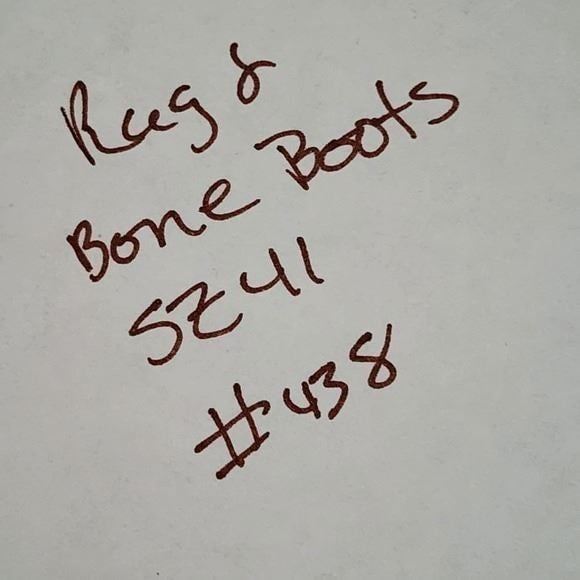 Rag &
Bone Boots
SZ 41
#438